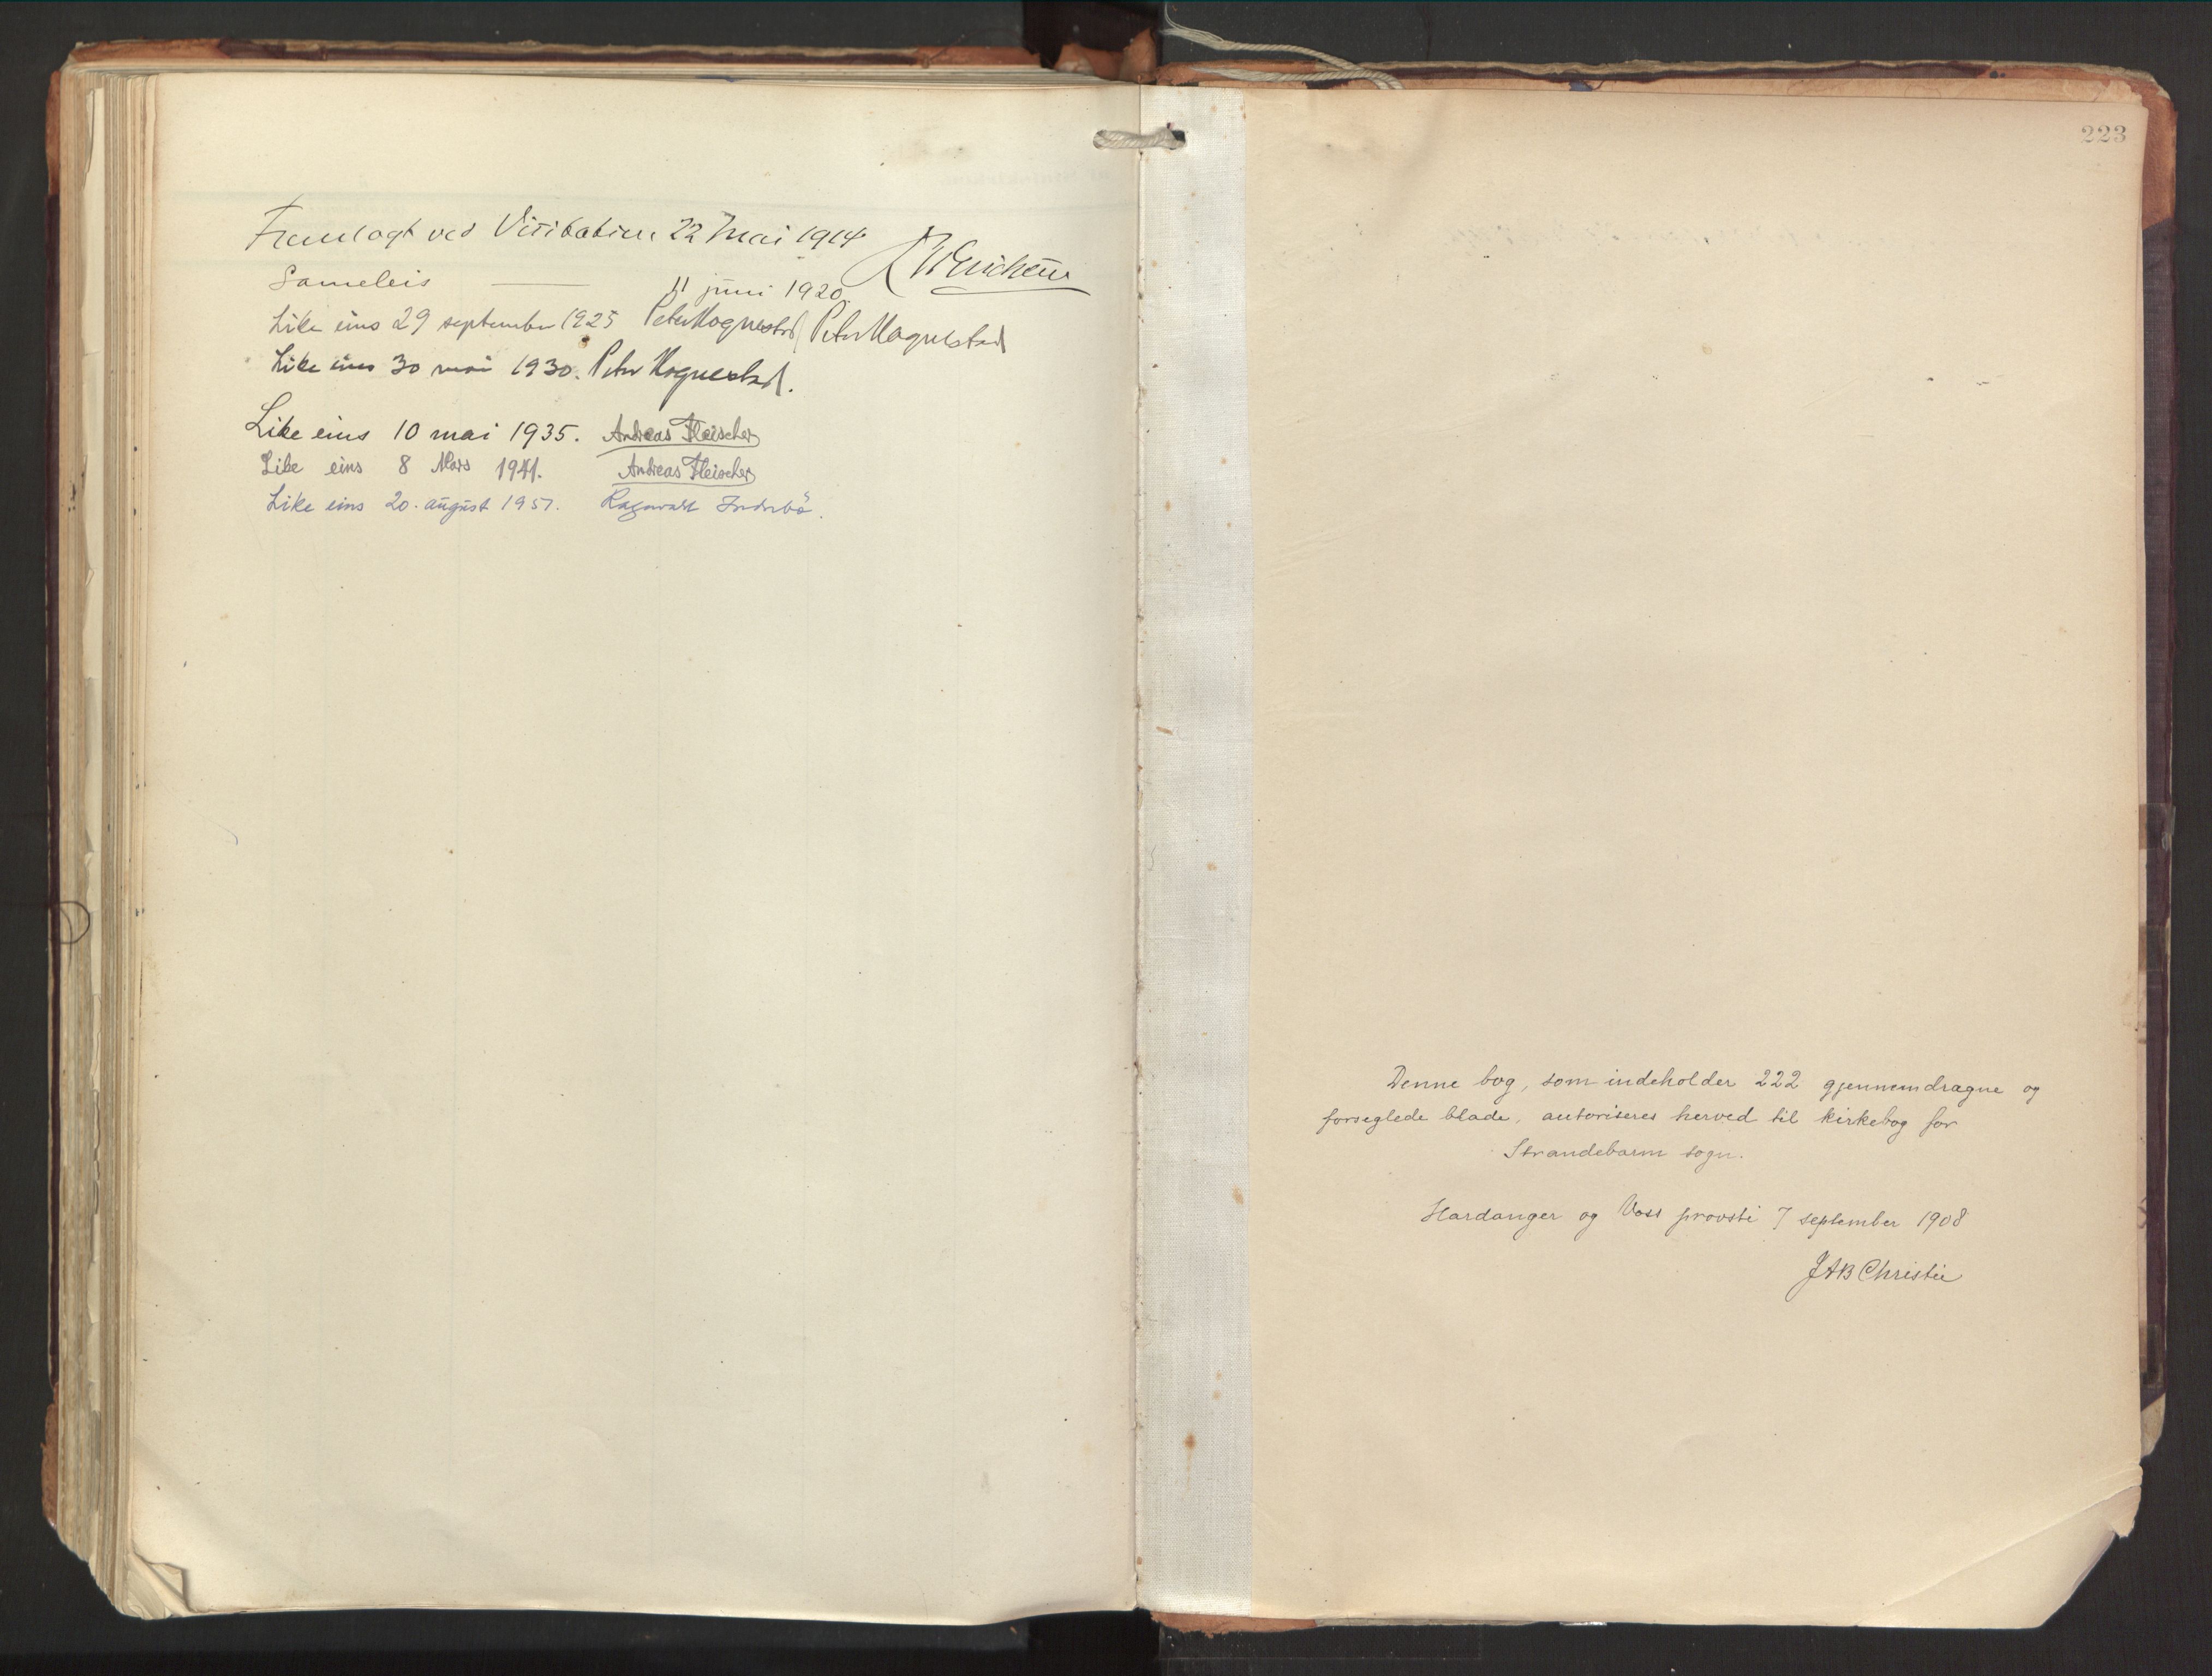 Fremlagt ved Visitatien 22 Mai 1914
Sameleis —— 11 juni 1920. Peter Hognestad
Like eins 29 september 1925 Peter Hognestad
Like eins 30 mai 1930. Peter Hognestad.
Like eins 10 mai 1935. Andreas Fleischer
Like eins 8 Mars 1941. Andreas Fleischer
Like eins 20. august 1951. Ragnvald Indrebö.
223
Denne bog, som indeholder 222 gjennemdragne og
forseglede blade, autoriseres herved til kirkebog for
Strandebarm sogn.
Hardanger og Voss provsti 7 september 1908
JAB Christie